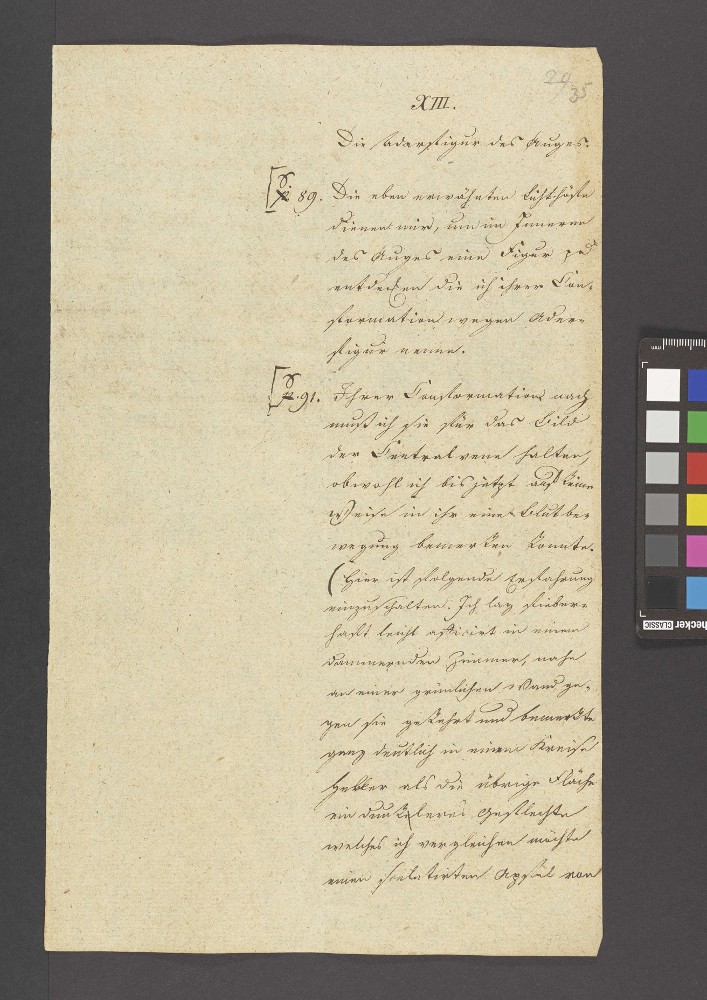 29/35
XIII.
Die Aderfigur des Auges.
89. Die eben erwähnten Lichthöfe
dienen mir, um im Inneren
des Auges eine Figur zu
entdecken die ich ihrer Con-
formation wegen Ader-
figur nenne.
91. Ihrer Conformation nach
muß ich sie für das Bild
der Centralvene halten,
obwohl ich bis jetzt auf keine
Weise in ihr eine Blutbe
wegung bemerken konnte.
(Hier ist folgende Erfahrung
einzuschalten. Ich lag fieber-
haft leicht afficirt in einem
dämmernden Zimmer, nahe
an einer grünlichen Wand ge-
gen sie gekehrt und bemerkte
ganz deutlich in einem Kreise
heller als die übrige Fläche
ein dunkleres Geflechte
welches ich vergleichen möchte
einem skelatirten Apfel von
mm
checker CLASSIC